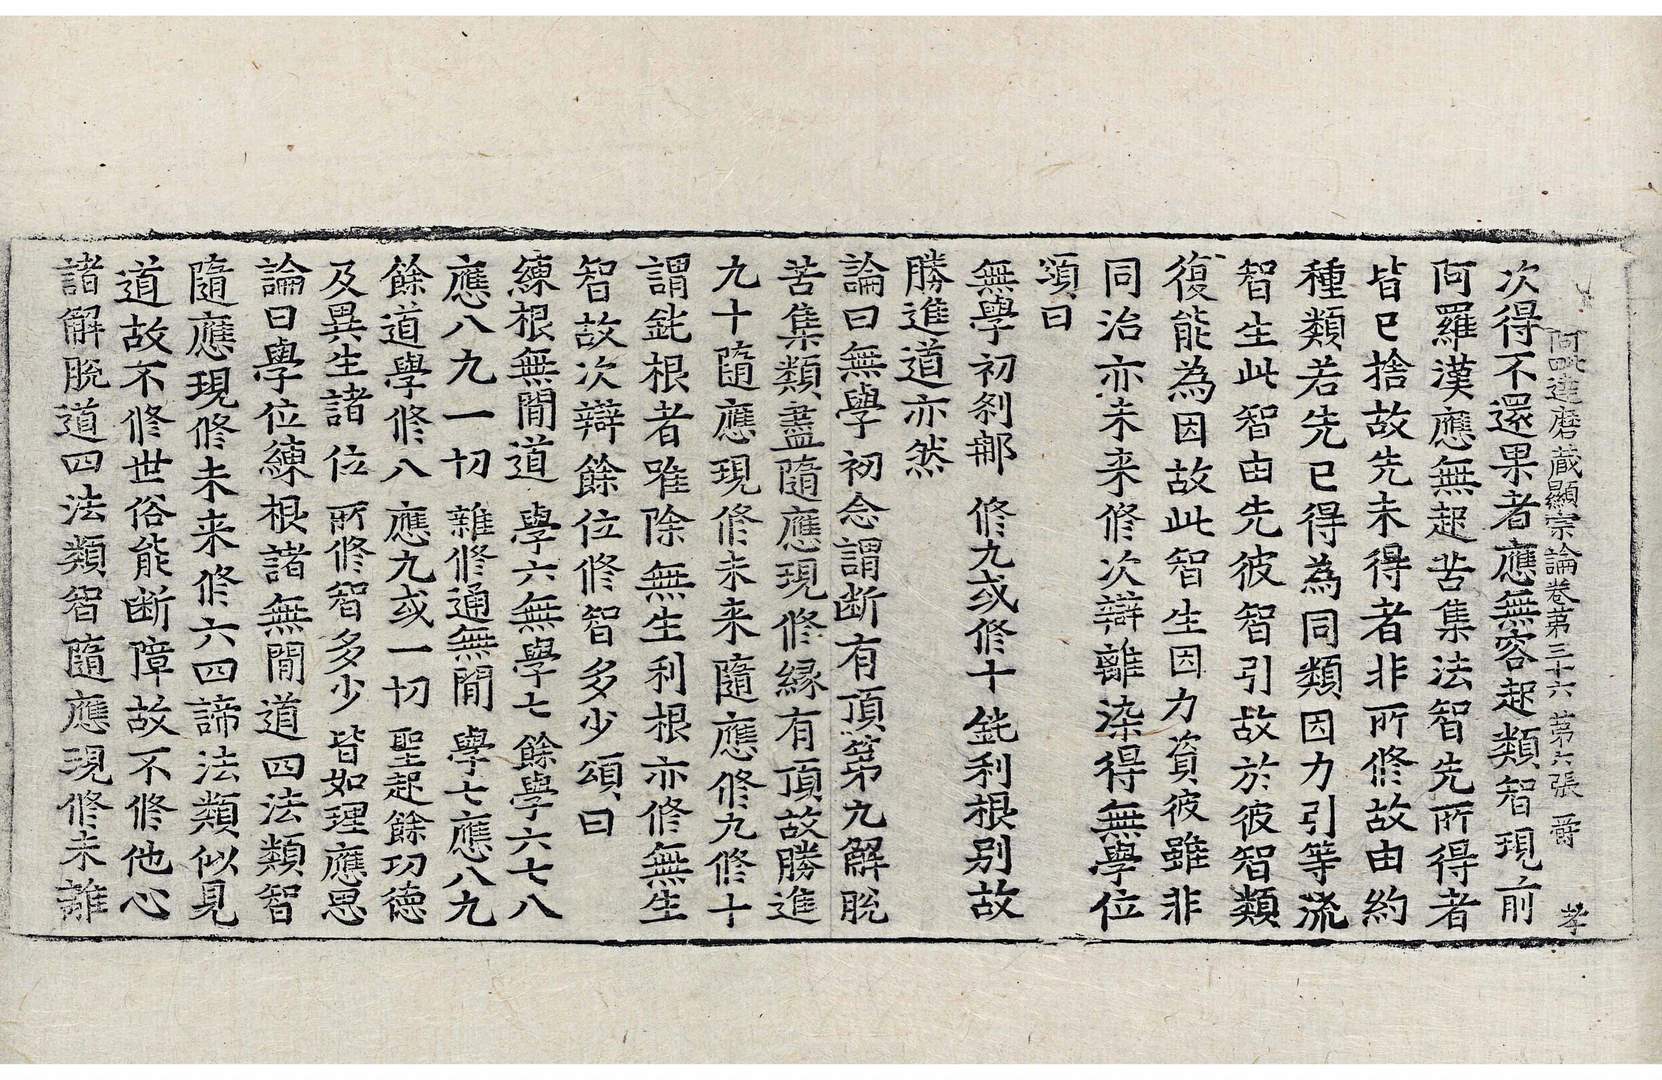 阿毗達磨藏顯宗論卷第三十六 第六張 爵
次得不還果者應無容起類智現前
阿羅漢應無起苦集法智先所得者
皆已捨故先未得者非所修故由約
種類若先已得為同類因力引等流
智生此智由先彼智引故於彼智類
復能為因故此智生因力資彼雖非
同治亦未来修次辯離染得無學位
頌曰
無學初刹那 修九或修十 鈍利根別故
勝進道亦然
論曰無學初念謂断有頂第九解脫
苦集類盡隨應現修緣有頂故勝進
九十隨應現修未来隨應修九修十
謂鈍根者唯除無生利根亦修無生
智故次辯餘位修智多少頌曰
練根無閒道 學六無學七 餘學六七八
應八九一切 雜修通無閒 學七應八九
餘道學修八 應九或一切 聖起餘功德
及異生諸位 所修智多少 皆如理應思
論曰學位練根諸無閒道四法類智
隨應現修未来修六四諦法類似見
道故不修世俗能断障故不修他心
諸解脫道四法類智隨應現修未離